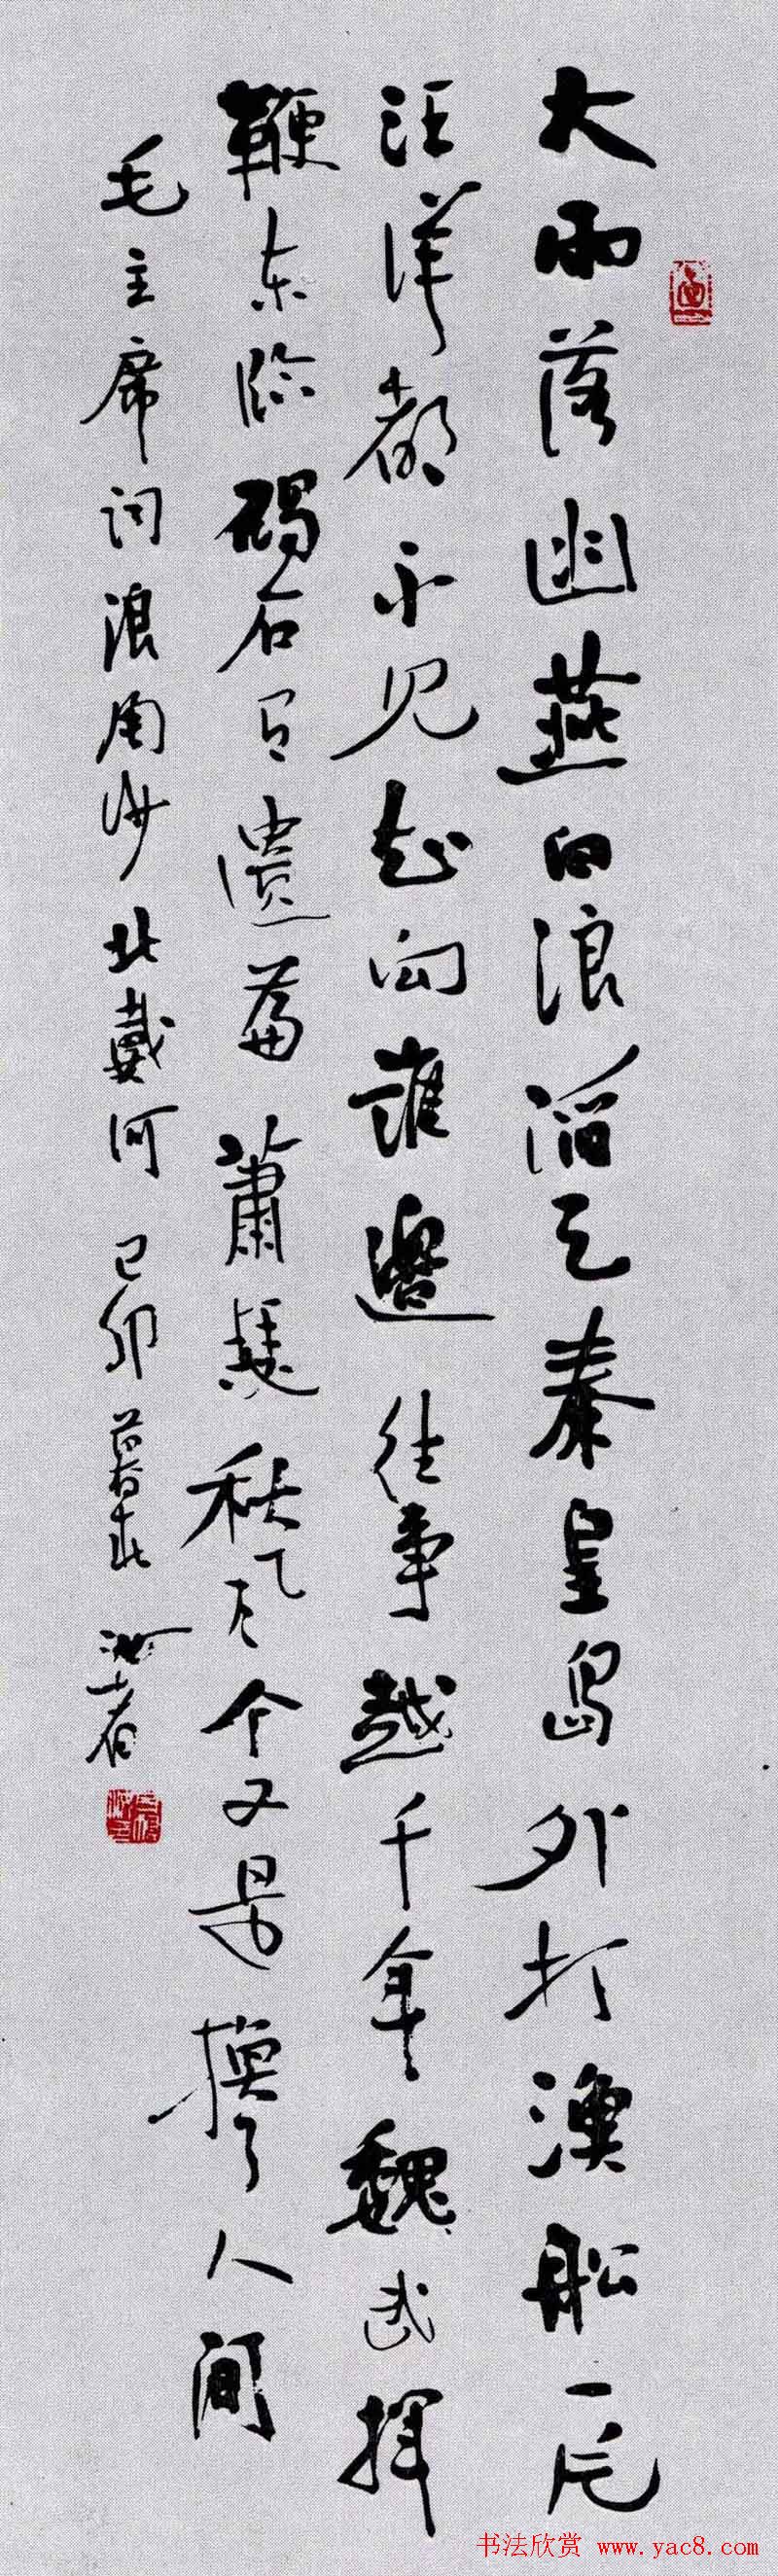 大雨落幽燕白浪滔天秦皇岛外打漁船一片
汪洋都不见知向誰邊往事越千年魏武揮
鞭东临碣石有遺篇蕭瑟秋风今又是換了人間
毛主席词浪淘沙北戴河 己卯暮春
书法欣赏 www.yac8.com